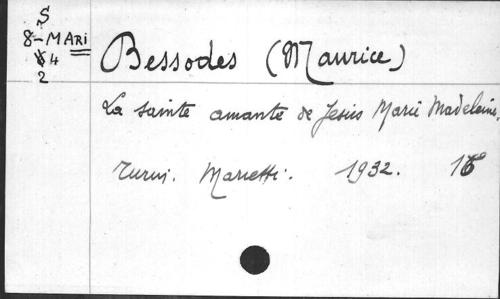 S
8-MARI
4
2
Bessodes (Maurice)
La sainte amante de Jésus Marie Madeleine.
Turin. Marietti. 1932.